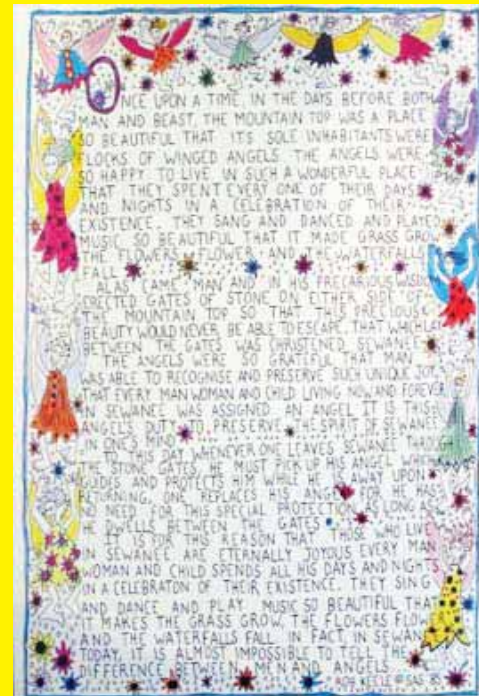 ONCE UPON A TIME, IN THE DAYS BEFORE BOTH
MAN AND BEAST, THE MOUNTAIN TOP WAS A PLACE
SO BEAUTIFUL THAT IT'S SOLE INHABITANTS WERE
FLOCKS OF WINGED ANGELS. THE ANGELS WERE
SO HAPPY TO LIVE IN SUCH A WONDERFUL PLACE
THAT THEY SPENT EVERY ONE OF THEIR DAYS
AND NIGHTS IN A CELEBRATION OF THEIR
EXISTENCE. THEY SANG AND DANCED AND PLAYED
MUSIC SO BEAUTIFUL THAT IT MADE GRASS GROW
THE FLOWERS FLOWER AND THE WATERFALLS
FALL
ALAS CAME MAN AND IN HIS PRECARIOUS WISDOM
ERECTED GATES OF STONE ON EITHER SIDE OF
THE MOUNTAIN TOP SO THAT THIS PRECIOUS
BEAUTY WOULD NEVER BE ABLE TO ESCAPE. THAT WHICH LAY
BETWEEN THE GATES WAS CHRISTENED SEWANEE
THE ANGELS WERE SO GRATEFUL THAT MAN
WAS ABLE TO RECOGNISE AND PRESERVE SUCH UNIQUE JOY
THAT EVERY MAN WOMAN AND CHILD LIVING NOW AND FOREVER
IN SEWANEE WAS ASSIGNED AN ANGEL IT IS THIS
ANGELS DUTY TO PRESERVE THE SPIRIT OF SEWANEE
IN ONE'S MIND
TO THIS DAY WHENEVER ONE LEAVES SEWANEE THROUGH
THE STONE GATES, HE MUST PICK UP HIS ANGEL WHICH
GUIDES AND PROTECTS HIM WHILE HE IS AWAY UPON
RETURNING, ONE REPLACES HIS ANGEL FOR HE HAS
NO NEED FOR THIS SPECIAL PROTECTION AS LONG AS
HE DWELLS BETWEEN THE GATES
IT IS FOR THIS REASON THAT THOSE WHO LIVE
IN SEWANEE ARE ETERNALLY JOYOUS EVERY MAN
WOMAN AND CHILD SPENDS ALL HIS DAYS AND NIGHTS
IN A CELEBRATON OF THEIR EXISTENCE. THEY SING
AND DANCE AND PLAY MUSIC SO BEAUTIFUL THAT
IT MAKES THE GRASS GROW, THE FLOWERS FLOW
AND THE WATERFALLS FALL IN FACT, IN SEWANEE
TODAY, IT IS ALMOST IMPOSSIBLE TO TELL THE
DIFFERENCE BETWEEN MEN AND ANGELS
KEELE SAS 85